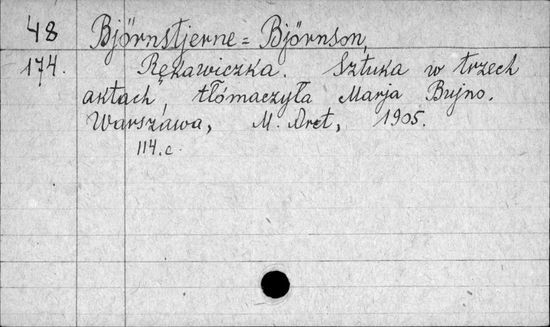 48 Björnstjerne=Björnson,
174. Rękawiczka. Sztuka w trzech
aktach, tłómaczyła Marja Bujno.
Warszawa, M. Arct, 1905.
114.c.